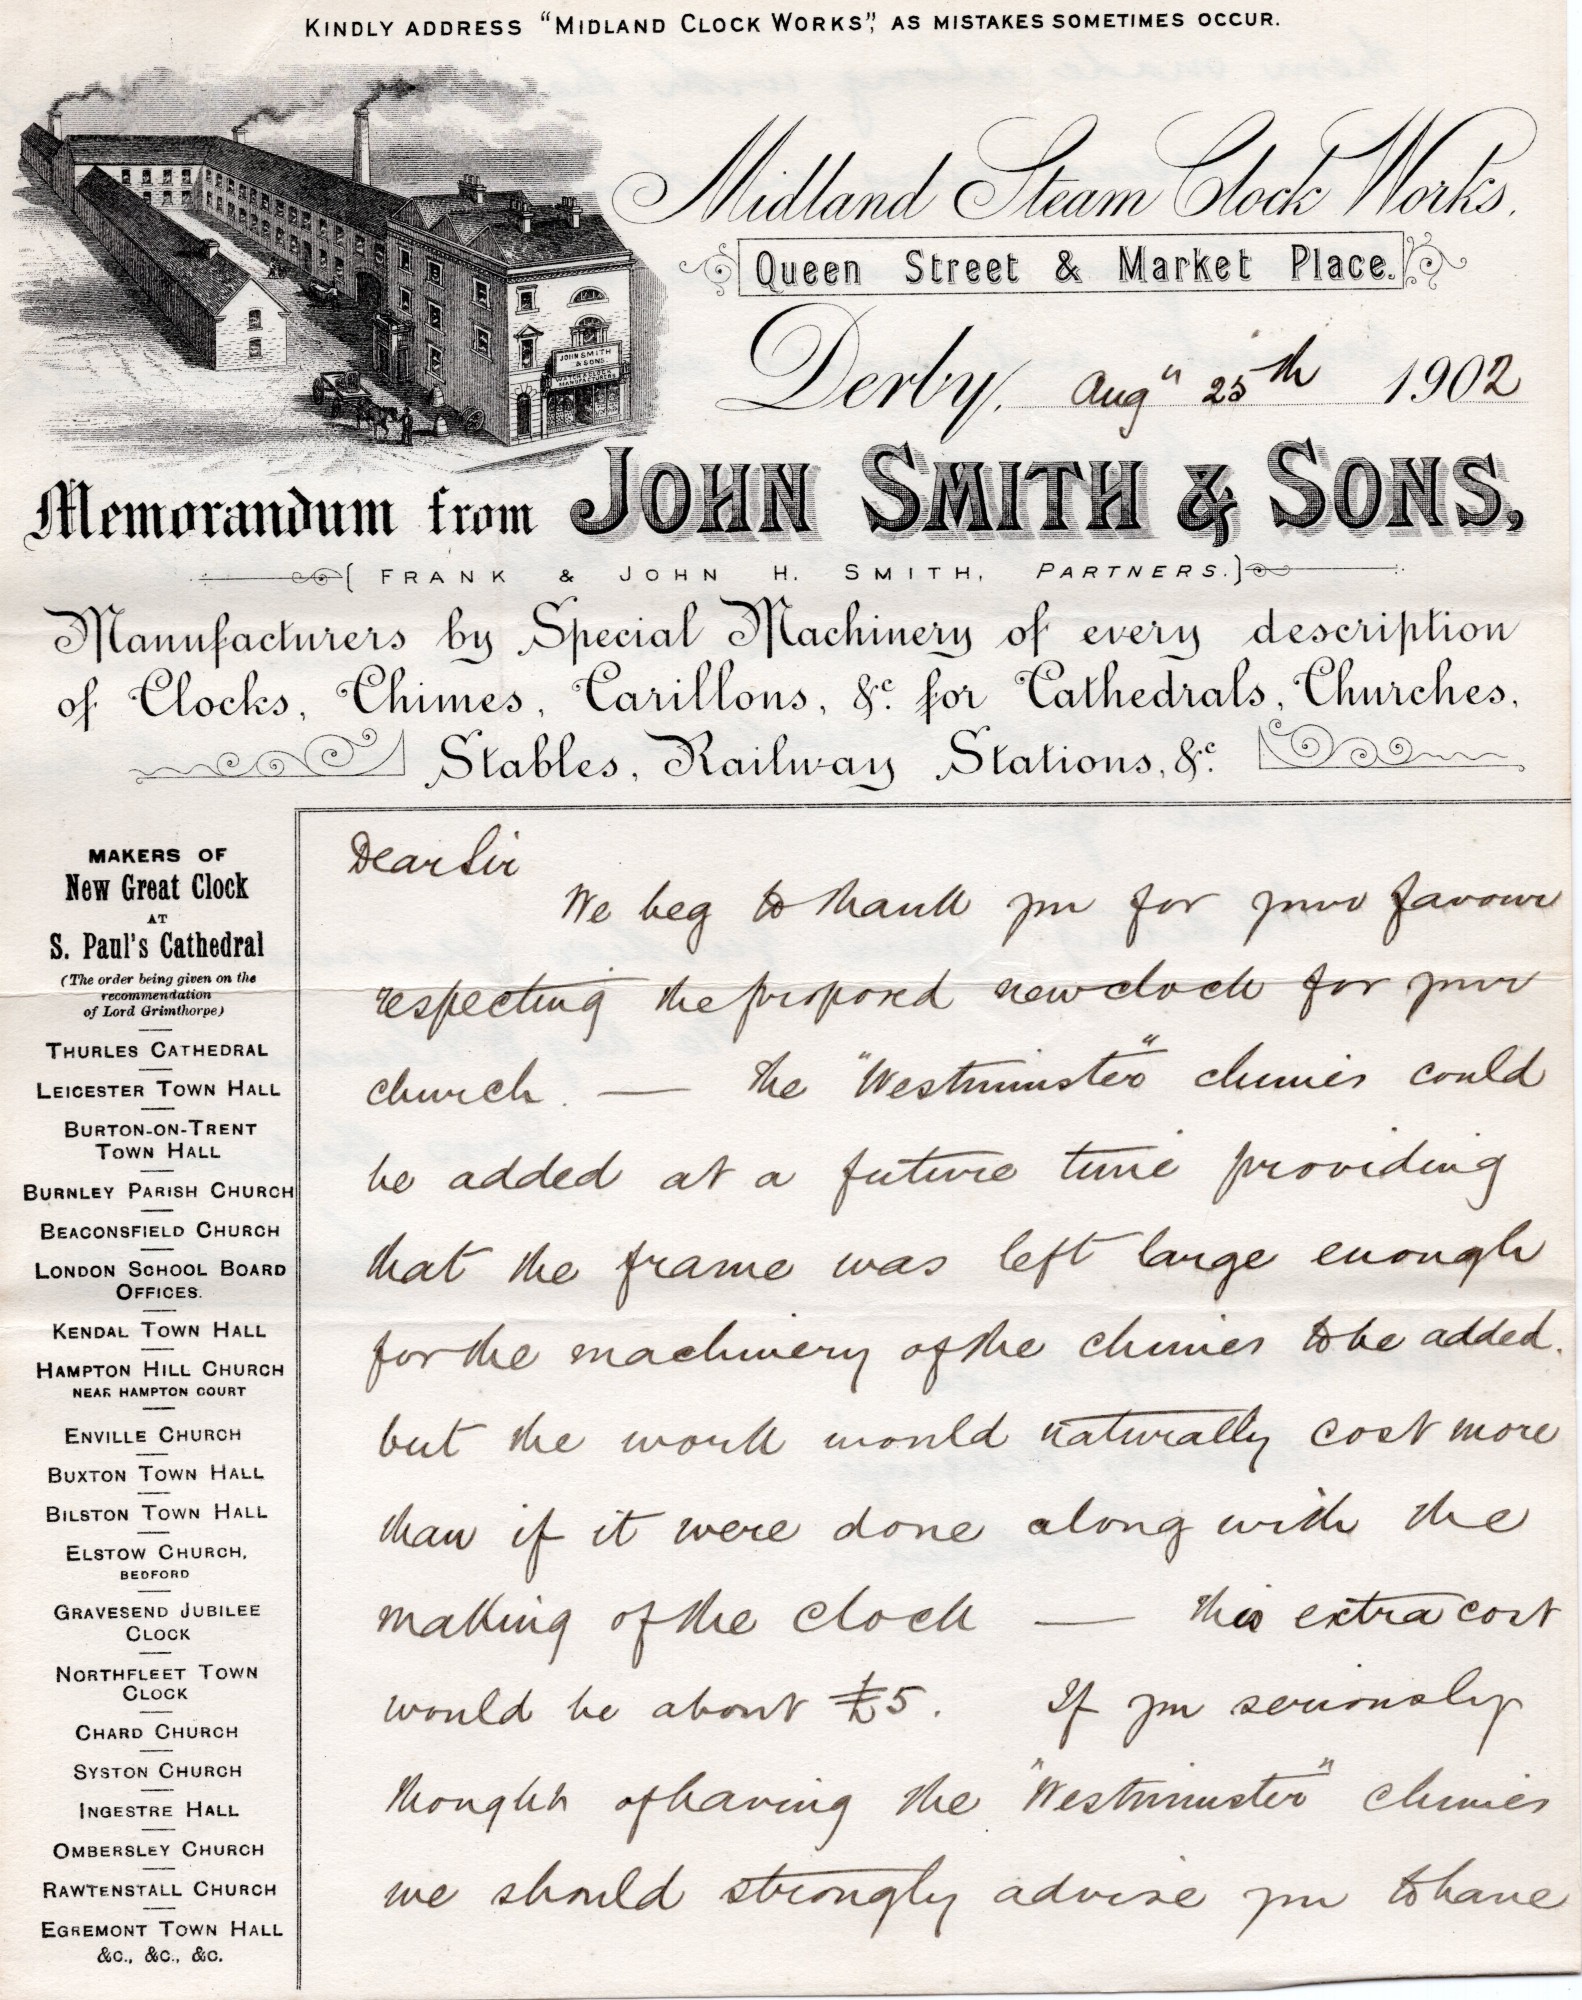 KINDLY ADDRESS "MIDLAND CLOCK WORKS", AS MISTAKES SOMETIMES OCCUR.
Midland Steam Clock Works.
Queen Street & Market Place.
JOHN SMITH
& SONS.
Derby, Augu 25th 1902
Memorandum from JOHN SMITH & SONS,
(FRANK & JOHN H. SMITH, PARTNERS.)
Manufacturers by Special Machinery of every description
of Clocks, Chimes, Carillons, &c. for Cathedrals, Churches,
Stables, Railway Stations, &c.
MAKERS OF
New Great Clock
AT
S. Paul's Cathedral
(The order being given on the
recommendation
of Lord Grimthorpe)
THURLES CATHEDRAL
LEICESTER TOWN HALL
BURTON-ON-TRENT
TOWN HALL
BURNLEY PARISH CHURCH
BEACONSFIELD CHURCH
LONDON SCHOOL BOARD
OFFICES.
KENDAL TOWN HALL
HAMPTON HILL CHURCH
NEAR HAMPTON COURT
ENVILLE CHURCH
BUXTON TOWN HALL
BILSTON TOWN HALL
ELSTOW CHURCH,
BEDFORD
GRAVESEND JUBILEE
CLOCK
NORTHFLEET TOWN
CLOCK
CHARD CHURCH
SYSTON CHURCH
INGESTRE HALL
OMBERSLEY CHURCH
RAWTENSTALL CHURCH
EGREMONT TOWN HALL
&C., &C., &C.
Dear Sir
We beg to thank you for your favour
respecting the proposed new clock for your
church. — the "Westminster" chimes could
be added at a future time providing
that the frame was left large enough
for the machinery of the chimes to be added.
but the work would naturally cost more
than if it were done along with the
making of the clock — this extra cost
would be about £5. If you seriously
thought of having the "Westminster" chimes
we should strongly advise you to have